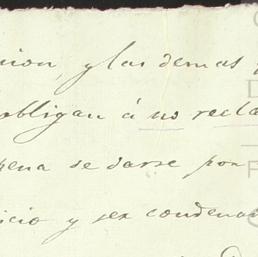 nion, y las demas
obligan á no recla
pena se darse por
icio y ser condena